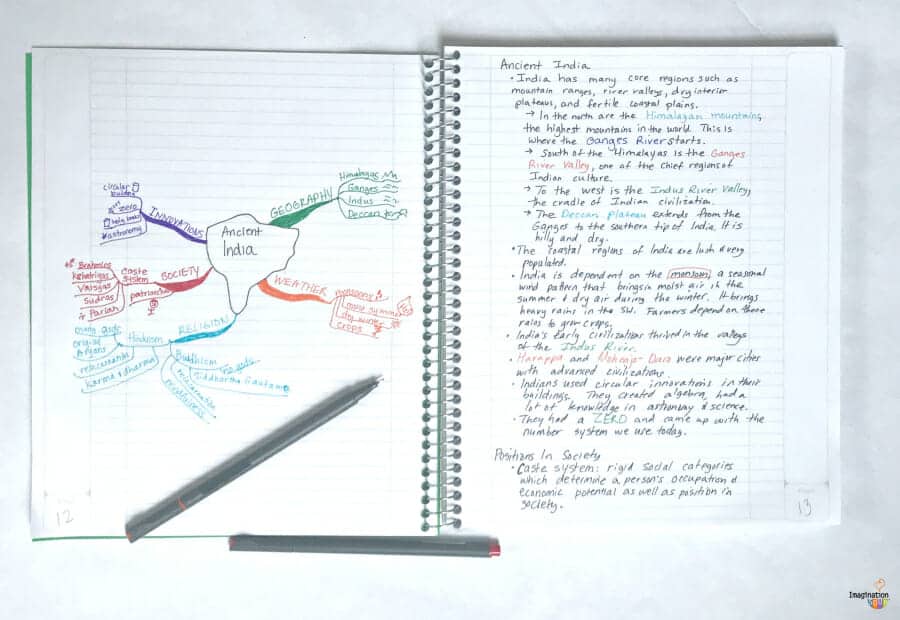 circular
building
zero
holy books
astronomy
INNOVATIONS
Brahmins
Kshatriyas
Vaisyas
Sudras
Pariah
caste
system
patriarchal
SOCIETY
many gods
Aryans
reincarnation
karma + dharma
Hinduism
RELIGION
Buddhism
Siddhartha Gautama
reincarnation
mindfulness
Ancient
India
GEOGRAPHY
Himalayas
Ganges
Indus
Deccan
WEATHER
monsoons
dry winter
crops
12
Ancient India
• India has many core regions such as
mountain ranges, river valleys, dry interior
plateaus, and fertile coastal plains.
→ In the north are the Himalayan mountains,
the highest mountains in the world. This is
where the Ganges River starts.
→ South of the Himalayas is the Ganges
River Valley, one of the chief regions of
Indian culture.
→ To the west is the Indus River Valley,
the cradle of Indian civilization.
→ The Deccan Plateau extends from the
Ganges to the southern tip of India. It is
hilly and dry.
• The coastal regions of India are lush & very
populated.
• India is dependent on the monsoon, a seasonal
wind pattern that brings in moist air in the
summer & dry air during the winter. It brings
heavy rains in the SW. Farmers depend on these
rains to grow crops.
• India's early civilizations thrived in the valleys
of the Indus River.
• Harappa and Mohenjo-Daro were major cities
with advanced civilizations.
• Indians used circular innovations in their
buildings. They created algebra, had a
lot of knowledge in astronomy & science.
• They had a ZERO and came up with the
number system we use today.
Positions In Society
• Caste system: rigid social categories
which determine a person's occupation &
economic potential as well as position in
society.
13
Imagination
SOUP